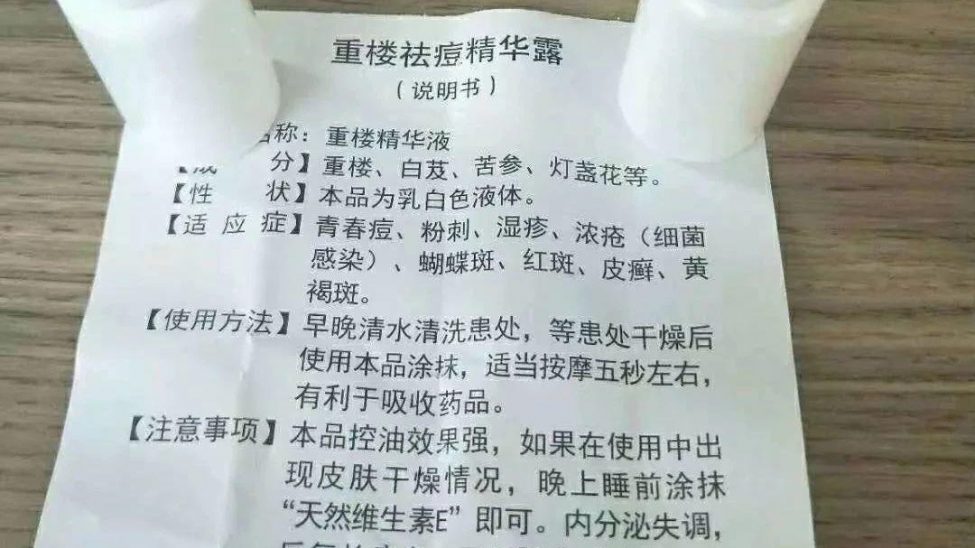 重楼祛痘精华露
（说明书）
名称：重楼精华液
分】重楼、白芨、苦参、灯盏花等。
【性 状】本品为乳白色液体。
【适应症】青春痘、粉刺、湿疹、浓疮（细菌
感染）、蝴蝶斑、红斑、皮癣、黄
褐斑。
【使用方法】早晚清水清洗患处，等患处干燥后
使用本品涂抹，适当按摩五秒左右，
有利于吸收药品。
【注意事项】本品控油效果强，如果在使用中出
现皮肤干燥情况，晚上睡前涂抹
“天然维生素E”即可。内分泌失调，